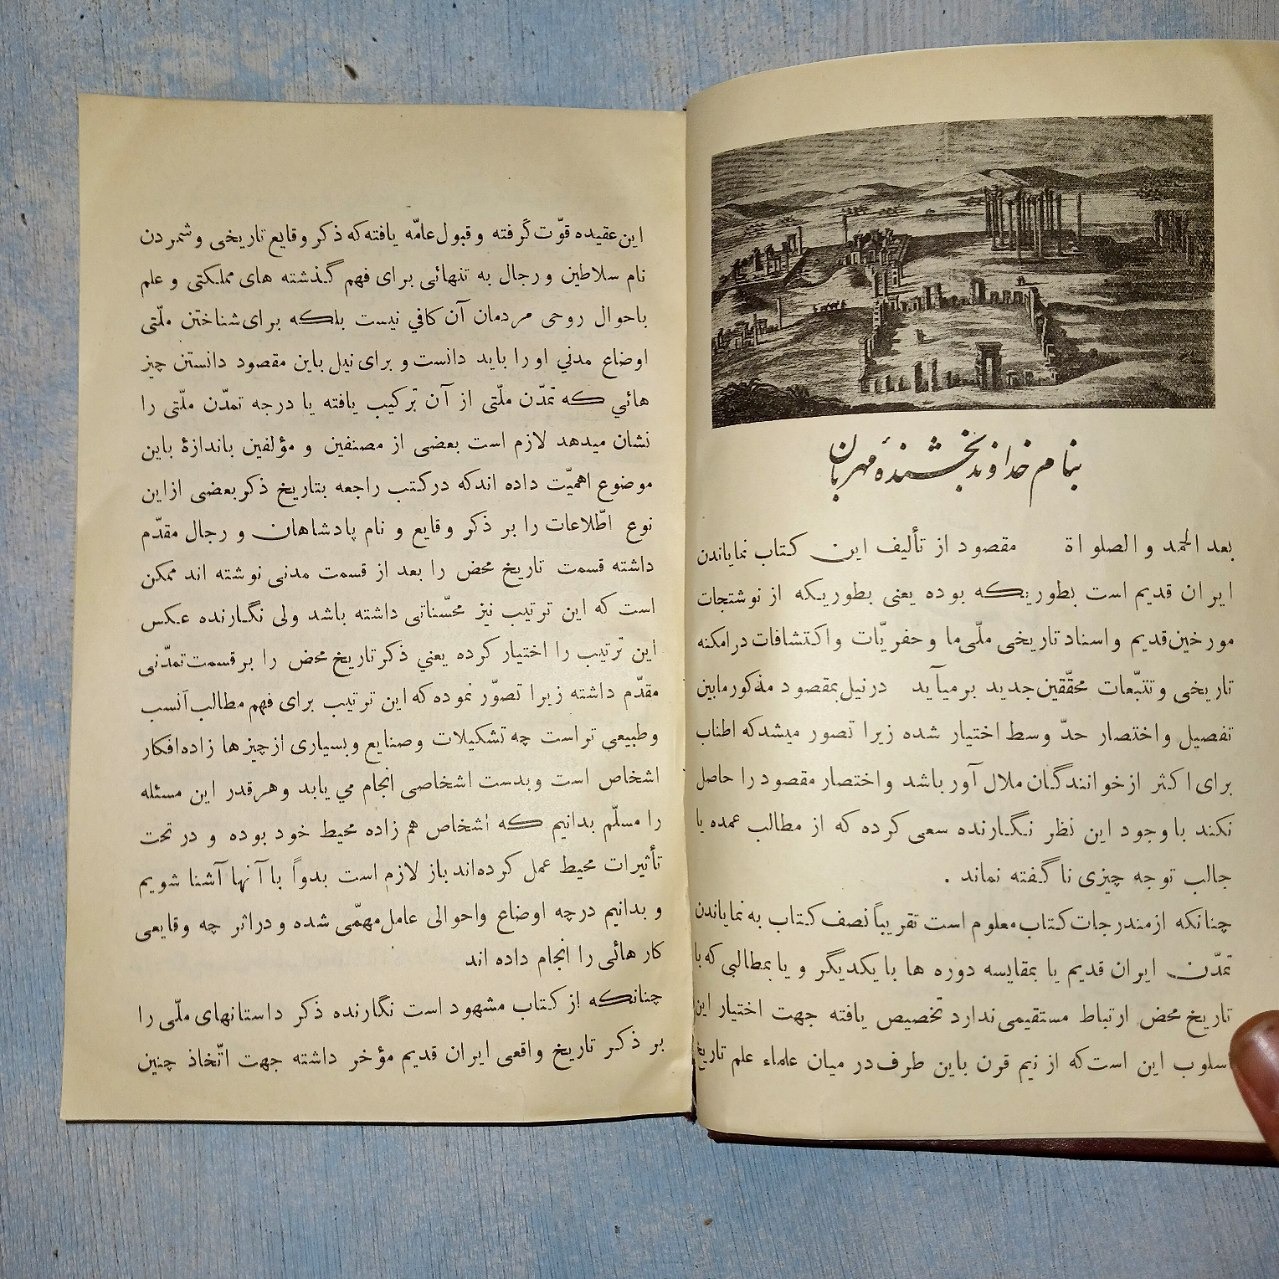 بنام خداوند بخشندهٔ مهربان
بعد الحمد و الصلواة مقصود از تألیف این کتاب نمایاندن
ایران قدیم است بطوریکه بوده یعنی بطوریکه از نوشتجات
مورخین قدیم و اسناد تاریخی ملّی ما و حفریّات و اکتشافات در امکنه
تاریخی و تتبّعات محقّقین جدید برمیآید در نیل بمقصود مذکور مابین
تفصیل و اختصار حدّ وسط اختیار شده زیرا تصور میشد که اطناب
برای اکثر از خوانندگان ملال آور باشد و اختصار مقصود را حاصل
نکند با وجود این نظر نگارنده سعی کرده که از مطالب عمده یا
جالب توجه چیزی نا گفته نماند .
چنانکه از مندرجات کتاب معلوم است تقریباً نصف کتاب به نمایاندن
تمدّن ایران قدیم یا بمقایسه دوره ها با یکدیگر و یا بمطالبی که با
تاریخ محض ارتباط مستقیمی ندارد تخصیص یافته جهت اختیار این
اسلوب این است که از نیم قرن باین طرف در میان علماء علم تاریخ
این عقیده قوّت گرفته و قبول عامّه یافته که ذکر وقایع تاریخی و شمردن
نام سلاطین و رجال به تنهائی برای فهم گذشته های مملکتی و علم
باحوال روحی مردمان آن کافی نیست بلکه برای شناختن ملّتی
اوضاع مدنی او را باید دانست و برای نیل باین مقصود دانستن چیز
هائی که تمدّن ملّتی از آن ترکیب یافته یا درجه تمدّن ملّتی را
نشان میدهد لازم است بعضی از مصنفین و مؤلفین باندازهٔ باین
موضوع اهمیّت داده اند که در کتب راجعه بتاریخ ذکر بعضی از این
نوع اطّلاعات را بر ذکر وقایع و نام پادشاهان و رجال مقدّم
داشته قسمت تاریخ محض را بعد از قسمت مدنی نوشته اند ممکن
است که این ترتیب نیز محسّناتی داشته باشد ولی نگارنده عکس
این ترتیب را اختیار کرده یعنی ذکر تاریخ محض را بر قسمت تمدّنی
مقدّم داشته زیرا تصوّر نموده که این ترتیب برای فهم مطالب اَنسب
و طبیعی تر است چه تشکیلات و صنایع و بسیاری از چیز ها زاده افکار
اشخاص است و بدست اشخاصی انجام می یابد و هر قدر این مسئله
را مسلّم بدانیم که اشخاص هم زاده محیط خود بوده و در تحت
تأثیرات محیط عمل کرده‌اند باز لازم است بدواً با آنها آشنا شویم
و بدانیم در چه اوضاع و احوالی عامل مهمّی شده و در اثر چه وقایعی
کار هائی را انجام داده اند
چنانکه از کتاب مشهود است نگارنده ذکر داستانهای ملّی را
بر ذکر تاریخ واقعی ایران قدیم مؤخر داشته جهت اتّخاذ چنین